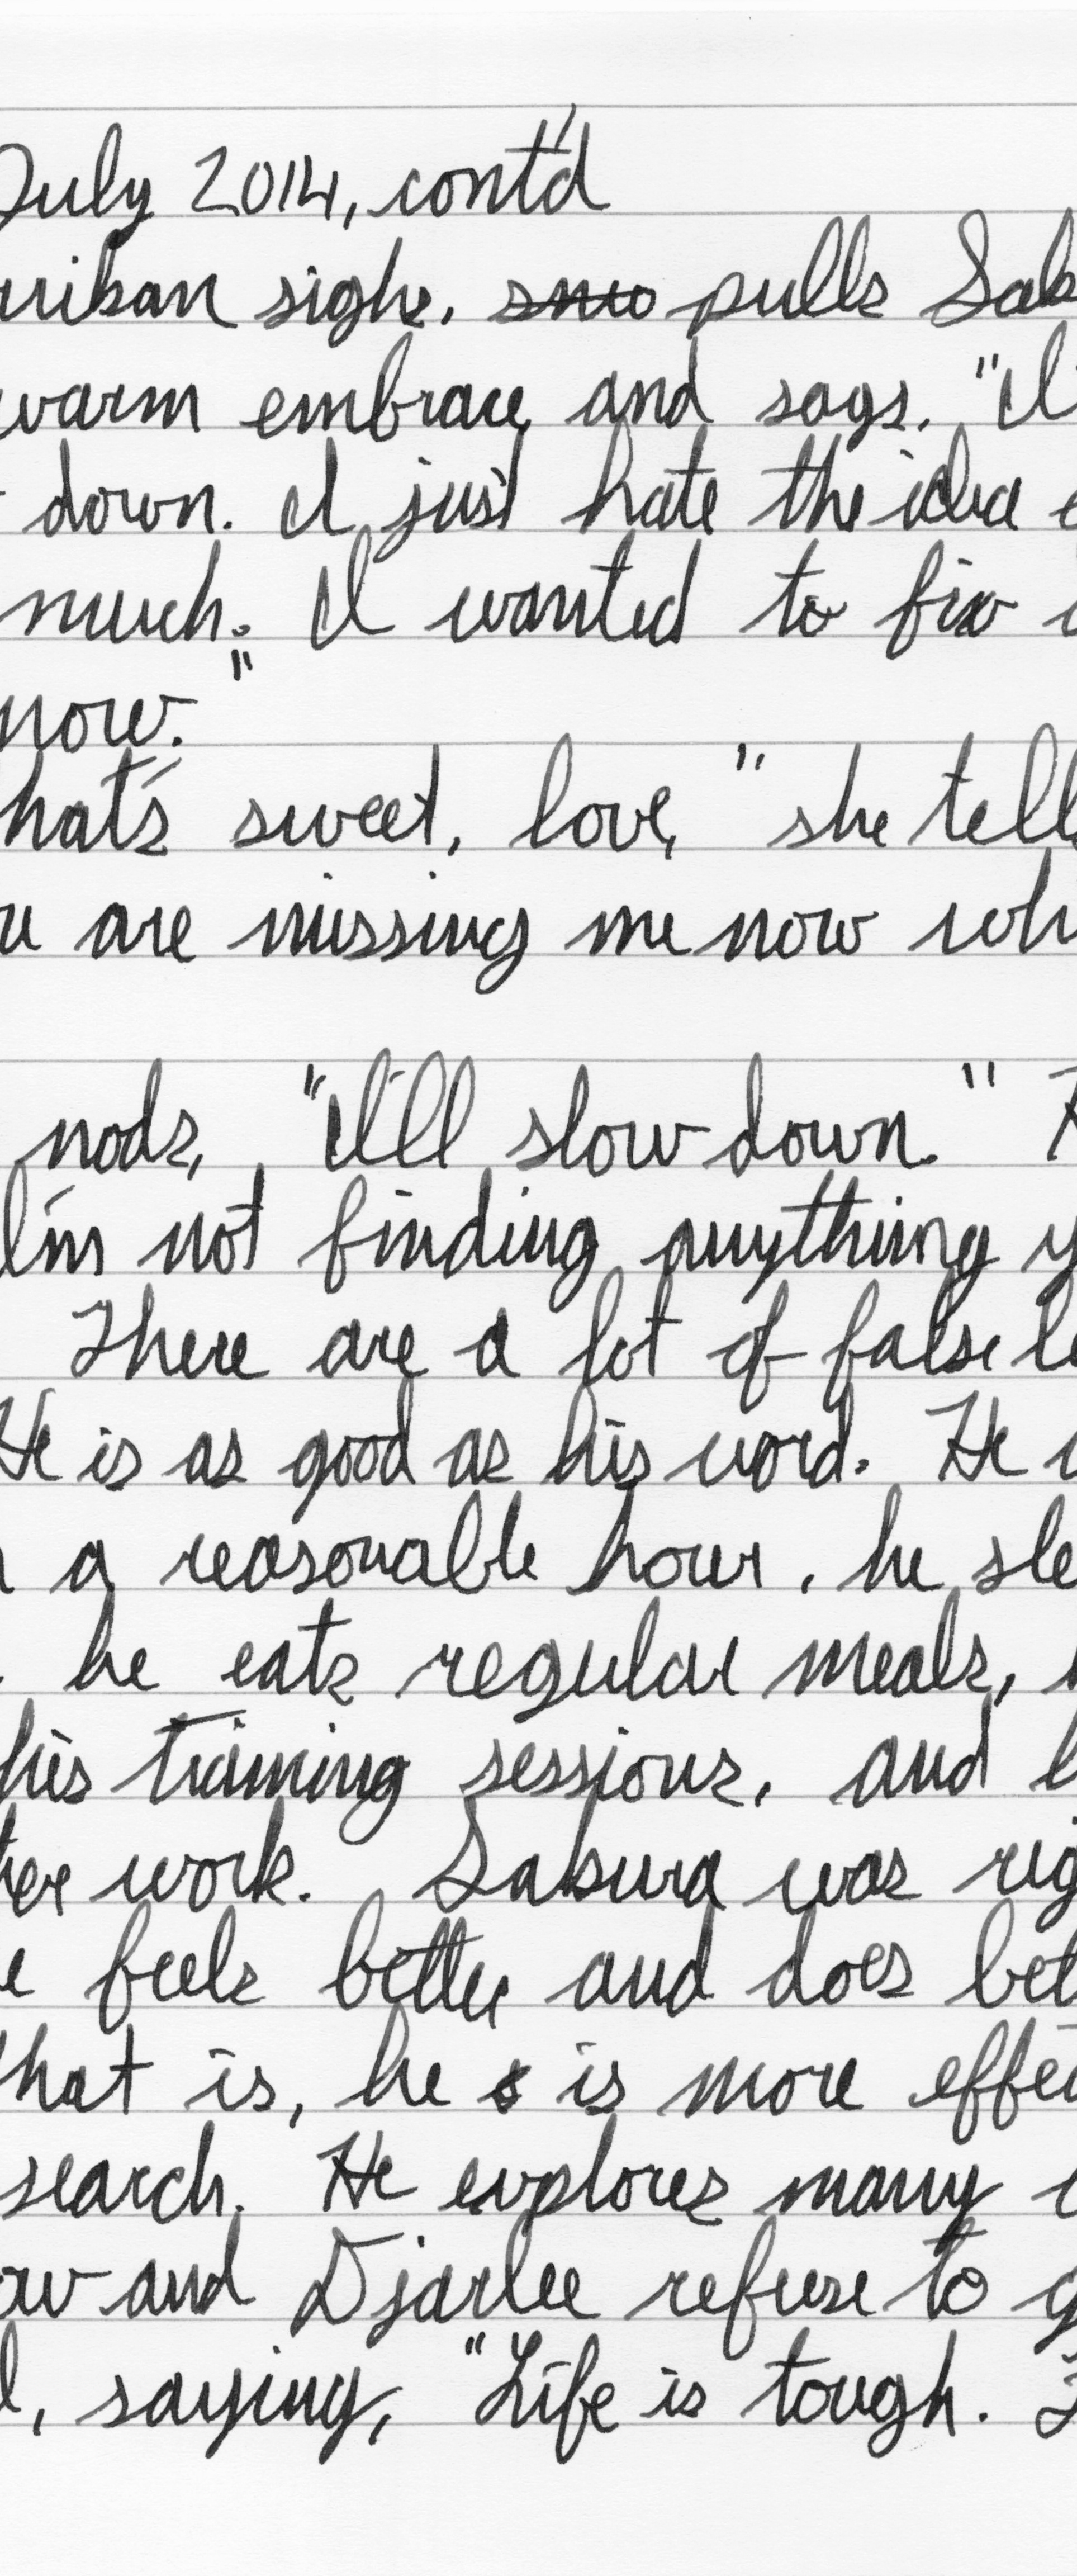 July 2014, cont'd
uriban sighs, pulls Sab
warm embrace and says, "I'
down. I just hate the idea
much. I wanted to fix
now."
hat's sweet, love," she tell
u are missing me now wh
nods, "I'll slow down."
I'm not finding anything y
There are a lot of false le
He is as good as his word. He
a reasonable hour, he sle
he eats regular meals,
his training sessions, and
her work. Sabura was rig
e feels better and does bet
hat is, he is more effec
search. He explores many
ow and Djarlee refuse to g
l, saying, "Life is tough.